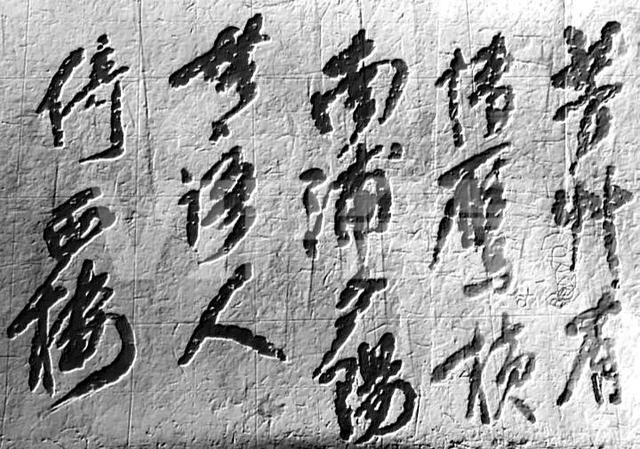 芳艸有
情雁橫
南浦夕陽
無語人
倚西樓